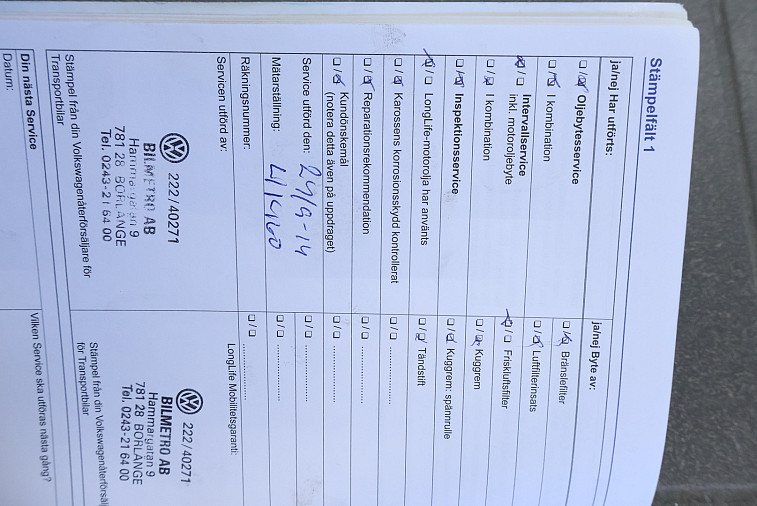 Stämpelfält 1
ja/nej Har utförts:
Oljebytesservice
I kombination
Intervallservice
inkl. motoroljebyte
I kombination
Inspektionsservice
LongLife-motorolja har använts
Karossens korrosionsskydd kontrollerat
Reparationsrekommendation
Kundönskemål
(notera detta även på uppdraget)
Service utförd den: 29/9-14
Mätarställning:
Räkningsnummer:
Servicen utförd av:
222/40271
BILMETRO AB
Hammargatan 9
781 28 BORLÄNGE
Tel. 0243-21 64 00
Stämpel från din Volkswagenåterförsäljare för
Transportbilar
ja/nej Byte av:
Bränslefilter
Luftfilterinsats
Friskluftsfilter
Kuggrem
Kuggrem: spännrulle
Tändstift
LongLife Mobilitetsgaranti:
222/40271
BILMETRO AB
Hammargatan 9
781 28 BORLÄNGE
Tel. 0243-21 64 00
Stämpel från din Volkswagenåterförsälj
för Transportbilar
Din nästa Service
Datum:
Vilken Service ska utföras nästa gång?